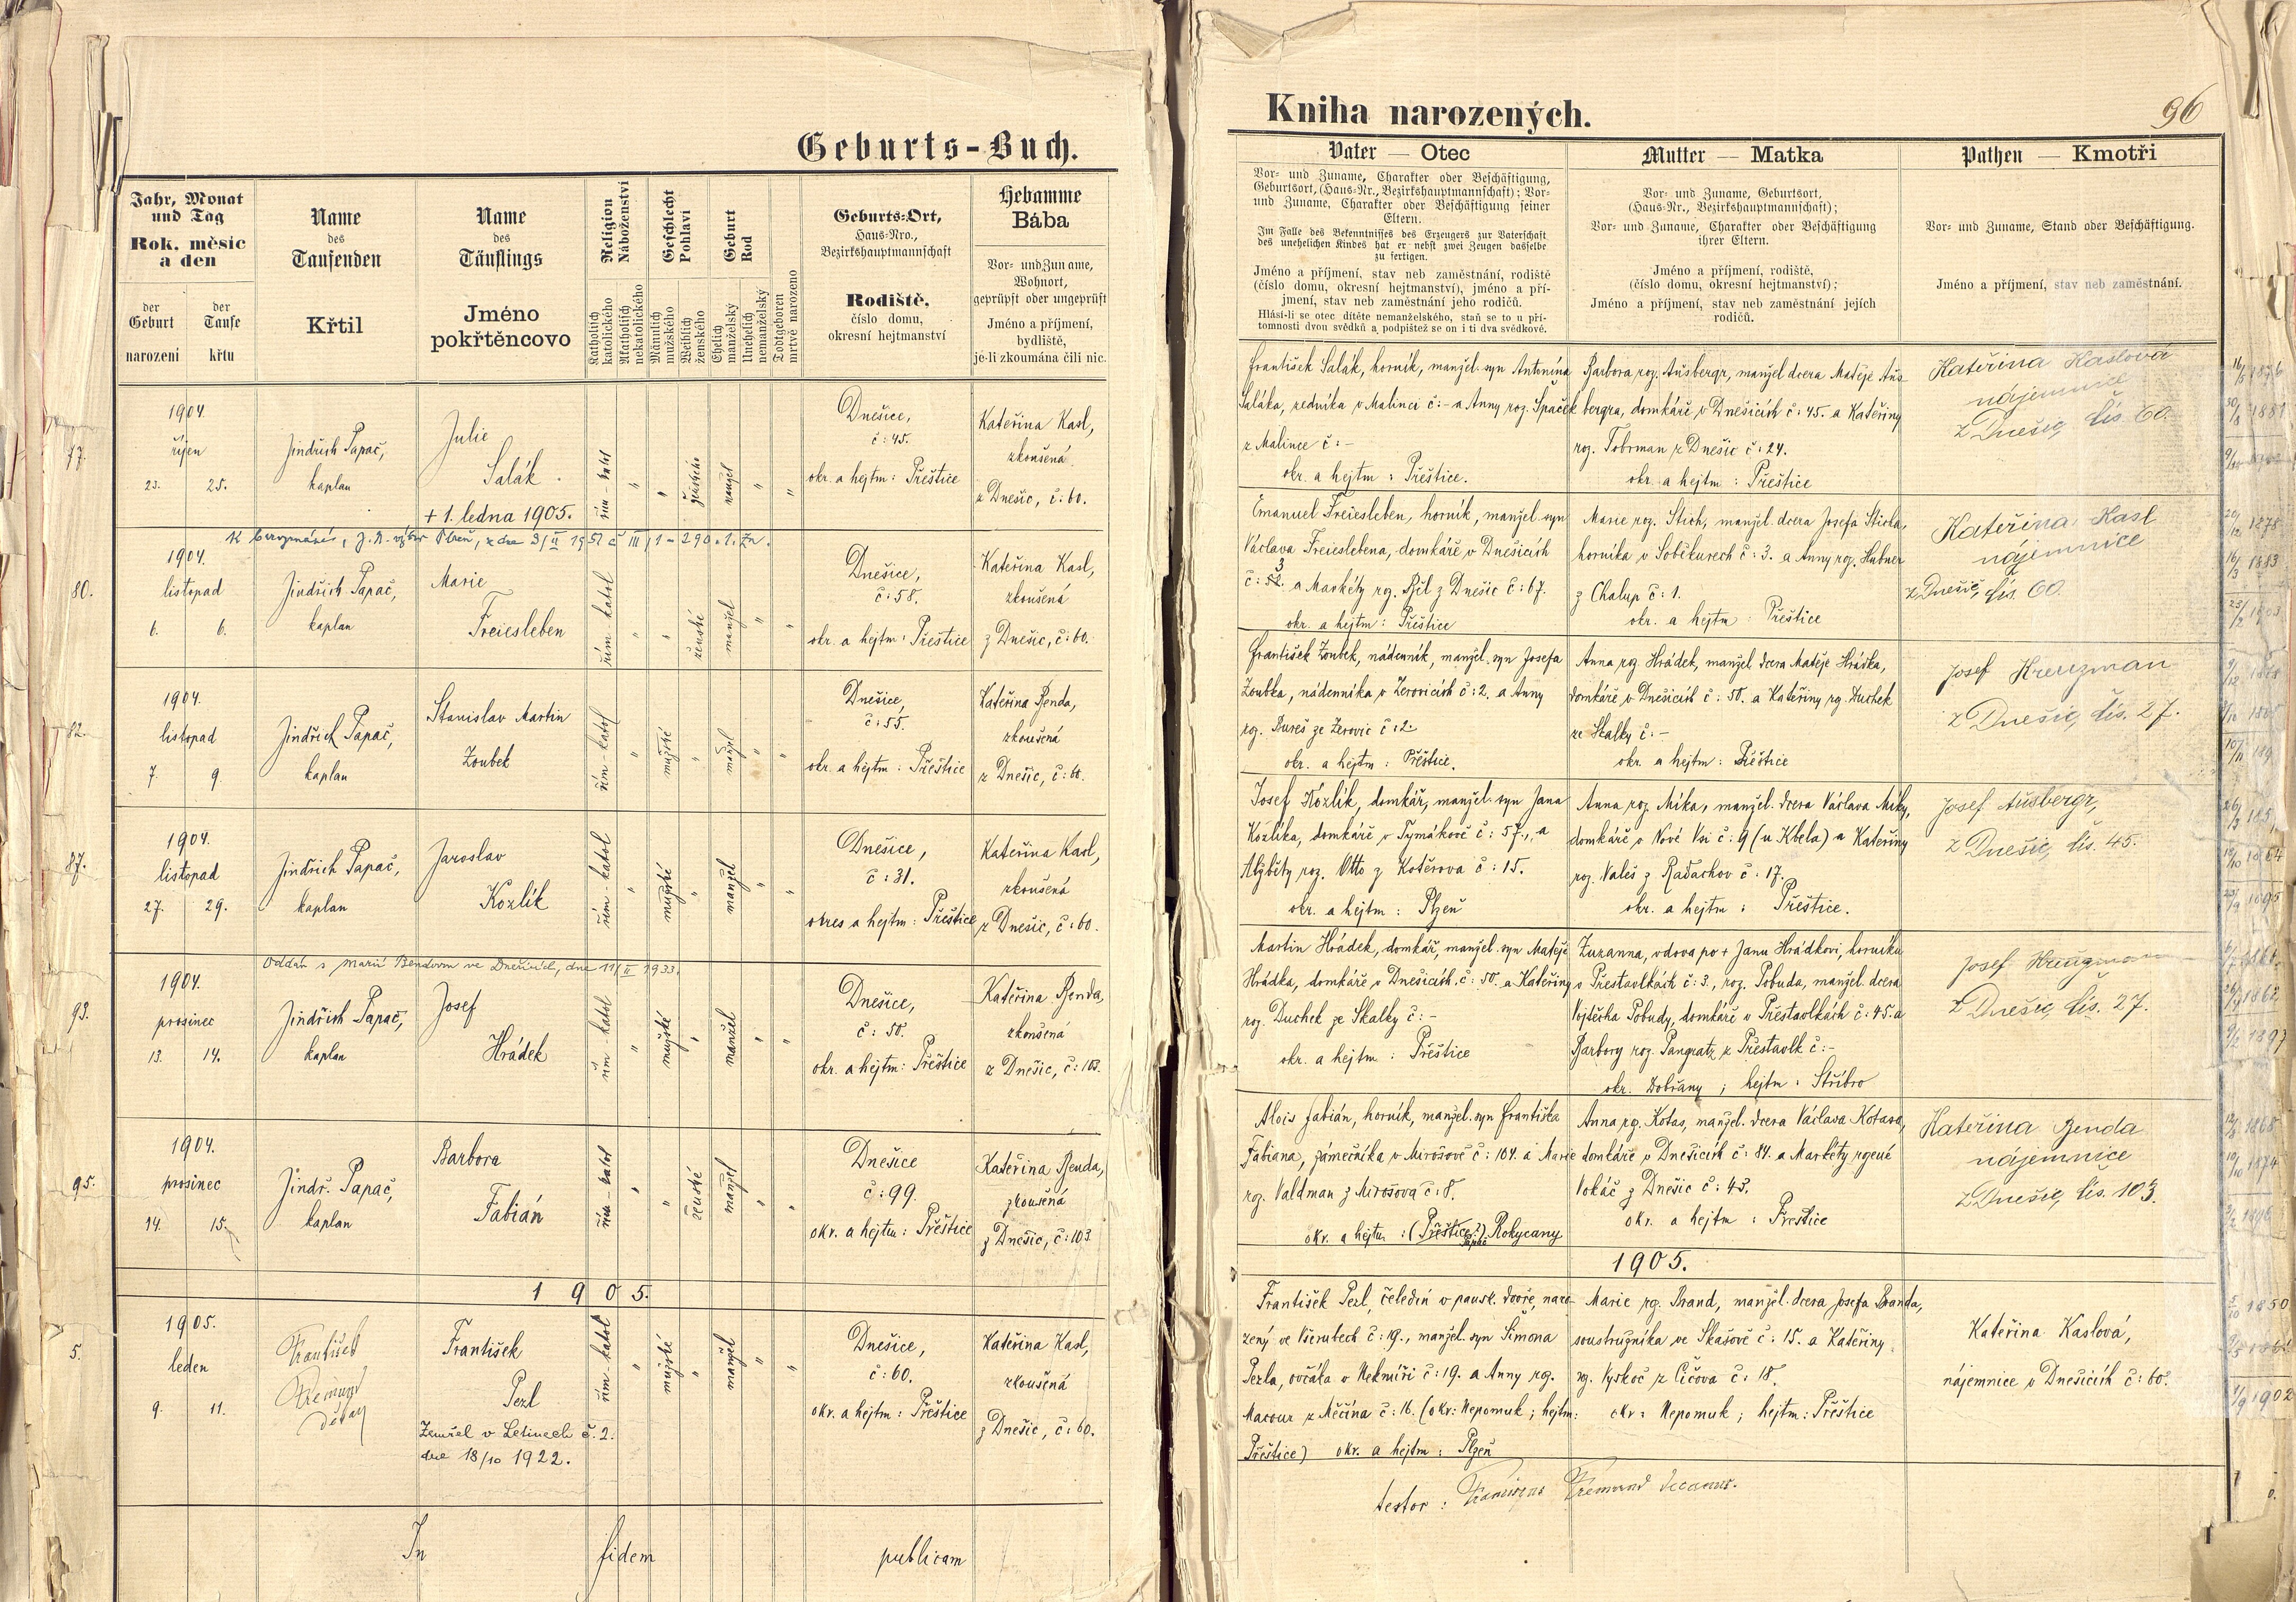 Geburts-Buch.
Jahr, Monat
und Tag
Rok, měsic
a den
der
Geburt
narození
der
Taufe
křtu
Name
des
Taufenden
Křtil
Name
des
Täuflings
Jméno
pokřtěncovo
Religion
Náboženství
Katholisch
katolického
Akatholisch
nekatolického
Geschlecht
Pohlaví
Männlich
mužského
Weiblich
ženského
Geburt
Rod
Ehelich
manželský
Unehelich
nemanželský
Todtgeboren
mrtvě narozeno
Geburts-Ort,
Haus-Nro.,
Bezirkshauptmannschaft
Rodiště,
číslo domu,
okresní hejtmanství
Hebamme
Bába
Vor- und Zuname,
Wohnort,
geprüpft oder ungeprüft
Jméno a příjmení,
bydliště,
je-li zkoumána čili nic.
77.
1904.
říjen
23. 25.
Jindřich Papač,
kaplan
Julie
Salák
+ 1. ledna 1905.
řím-katol
"
"
ženské
manžel
"
"
Dnešice,
č: 45.
okr. a hejtm: Přeštice
Kateřina Kasl,
zkoušená
z Dnešic, č: 60.
80.
1904.
listopad
6. 6.
Jindřich Papač,
kaplan
Marie
Freiesleben
řím-katol
"
"
ženské
manžel
"
"
Dnešice,
č: 58.
okr. a hejtm: Přeštice
Kateřina Kasl,
zkoušená
z Dnešic, č: 60.
82.
1904.
listopad
7. 9
Jindřich Papač,
kaplan
Stanislav Martin
Zoubek
řím-katol
"
mužské
"
manžel
"
"
Dnešice,
č: 55.
okr. a hejtm: Přeštice
Kateřina Benda,
zkoušená
z Dnešic, č: 60.
87.
1904.
listopad
27. 29.
Jindřich Papač,
kaplan
Jaroslav
Kozlík
řím-katol
"
mužské
"
manžel
"
"
Dnešice,
č: 31.
okres a hejtm: Přeštice
Kateřina Kasl,
zkoušená
z Dnešic, č: 60.
Oddán s Marií Bendovou ve Dnešicích, dne 11/II 1933.
93.
1904.
prosinec
13. 14.
Jindřich Papač,
kaplan
Josef
Hrádek
řím-katol
"
mužské
"
manžel
"
"
Dnešice,
č: 50.
okr. a hejtm: Přeštice
Kateřina Benda,
zkoušená
z Dnešic, č: 103.
95.
1904.
prosinec
14. 15.
Jindř. Papač,
kaplan
Barbora
Fabián
řím-katol
"
"
ženské
manžel
"
"
Dnešice
č: 99.
okr. a hejtm: Přeštice
Kateřina Benda,
zkoušená
z Dnešic, č: 103.
1905.
5.
1905.
leden
9. 11.
František
děkan
František
Pexl
Zemřel v Letinech č. 2.
dne 18/10 1922.
řím-katol
"
mužské
"
manžel
"
"
Dnešice,
č: 60.
okr. a hejtm: Přeštice
Kateřina Kasl,
zkoušená
z Dnešic, č: 60.
In fidem publicam
Kniha narozených.
96
Vater — Otec
Vor- und Zuname, Charakter oder Beschäftigung,
Geburtsort, (Haus-Nr., Bezirkshauptmannschaft); Vor-
und Zuname, Charakter oder Beschäftigung seiner
Eltern.
Im Falle des Bekenntnisses des Erzeugers zur Vaterschaft
des unehelichen Kindes hat er nebst zwei Zeugen dasselbe
zu fertigen.
Jméno a příjmení, stav neb zaměstnání, rodiště
(číslo domu, okresní hejtmanství), jméno a pří-
jmení, stav neb zaměstnání jeho rodičů.
Hlásí-li se otec dítěte nemanželského, staň se to u pří-
tomnosti dvou svědků a podpištež se on i ti dva svědkové.
Mutter — Matka
Vor- und Zuname, Geburtsort,
(Haus-Nr., Bezirkshauptmannschaft);
Vor- und Zuname, Charakter oder Beschäftigung
ihrer Eltern.
Jméno a příjmení, rodiště,
(číslo domu, okresní hejtmanství);
Jméno a příjmení, stav neb zaměstnání jejích
rodičů.
Pathen — Kmotři
Vor- und Zuname, Stand oder Beschäftigung.
Jméno a příjmení, stav neb zaměstnání.
František Salák, horník, manžel. syn Antonína
Saláka, zedníka v Malinci č: - a Anny roz. Špaček
z Malince č: -
okr. a hejtm: Přeštice.
Barbora roz. Aušbergr, manžel dcera Matěje Auš-
bergra, domkáře v Dnešicích č: 45. a Kateřiny
roz. Tobrman z Dnešic č: 24.
okr. a hejtm: Přeštice
Kateřina Kaslová
nájemnice
z Dnešic, čís. 60.
Emanuel Freiesleben, horník, manžel. syn
Václava Freieslebena, domkáře v Dnešicích
a Markéty roz. Bíl z Dnešic č: 67.
okr. a hejtm: Přeštice
Marie roz. Stich, manžel. dcera Josefa Sticha,
horníka v Soběkurech č: 3. a Anny roz. Hubner
z Chalup č: 1.
okr. a hejtm: Přeštice
Kateřina Kasl
nájemnice
z Dnešic, čís. 60.
František Zoubek, nádenník, manžel. syn Josefa
Zoubka, nádenníka v Žerovicích č: 2. a Anny
rz. Bureš ze Žerovic č: 2
okr. a hejtm: Přeštice.
Anna rz. Hrádek, manžel. dcera Matěje Hrádka,
domkáře v Dnešicích č: 50. a Kateřiny rz. Duchek
ze Skalky č: -
okr. a hejtm: Přeštice
Josef
z Dnešic, čís. 27.
Josef Kozlík, domkář, manžel. syn Jana
Kozlíka, domkáře v Tymákově č: 57., a
Alžběty roz. Otto z Kotěrova č: 15.
okr. a hejtm: Plzeň
Anna roz. Míka, manžel. dcera Václava Míky,
domkáře v Nové Vsi č: 9 (u Kbela) a Kateřiny
roz. Valeš z Radachov č: 17.
okr. a hejtm: Přeštice.
Josef Aušbergr,
z Dnešic, čís. 45.
Martin Hrádek, domkář, manžel. syn Matěje
Hrádka, domkáře v Dnešicích č: 50. a Kateřiny
roz. Duchek ze Skalky č: -
okr. a hejtm: Přeštice
Zuzanna, vdova po + Janu Hrádkovi, horníku
v Přestavlkách č: 3., roz. Pobuda, manžel. dcera
Vojtěcha Pobudy, domkáře v Přestavlkách č: 45. a
Barbory roz. Pangratz z Přestavlk č: -
okr. Dobřany; hejtm: Stříbro
Josef
z Dnešic, čís. 27.
Alois Fabián, horník, manžel. syn Františka
Fabiana, zámečníka v Mirošově č: 104. a Marie
rz. Valdman z Mirošova č: 8.
okr. a hejtm: (Přeštice?) Rokycany
Anna rz. Kotas, manžel. dcera Václava Kotasa,
domkáře v Dnešicích č: 84. a Markéty rzené
Vokáč z Dnešic č: 43.
okr. a hejtm: Přeštice
Kateřina Benda
nájemnice
z Dnešic, čís. 103.
1905.
František Pexl, čeledín v pansk. dvoře, naro-
zený ve Všerubech č: 19., manžel. syn Šimona
Pexla, ovčáka v Nekmíři č: 19. a Anny rz.
Macour z Měčína č: 16. (okr: Nepomuk; hejtm:
Přeštice) okr. a hejtm: Plzeň
Marie rz. Brand, manžel. dcera Josefa Branda,
soustružníka ve Skašově č: 15. a Kateřiny
rz. Vyskoč z Čičova č: 18.
okr: Nepomuk; hejtm: Přeštice
Kateřina Kaslová,
nájemnice v Dnešicích č: 60.
testor: Franciscus decanus.